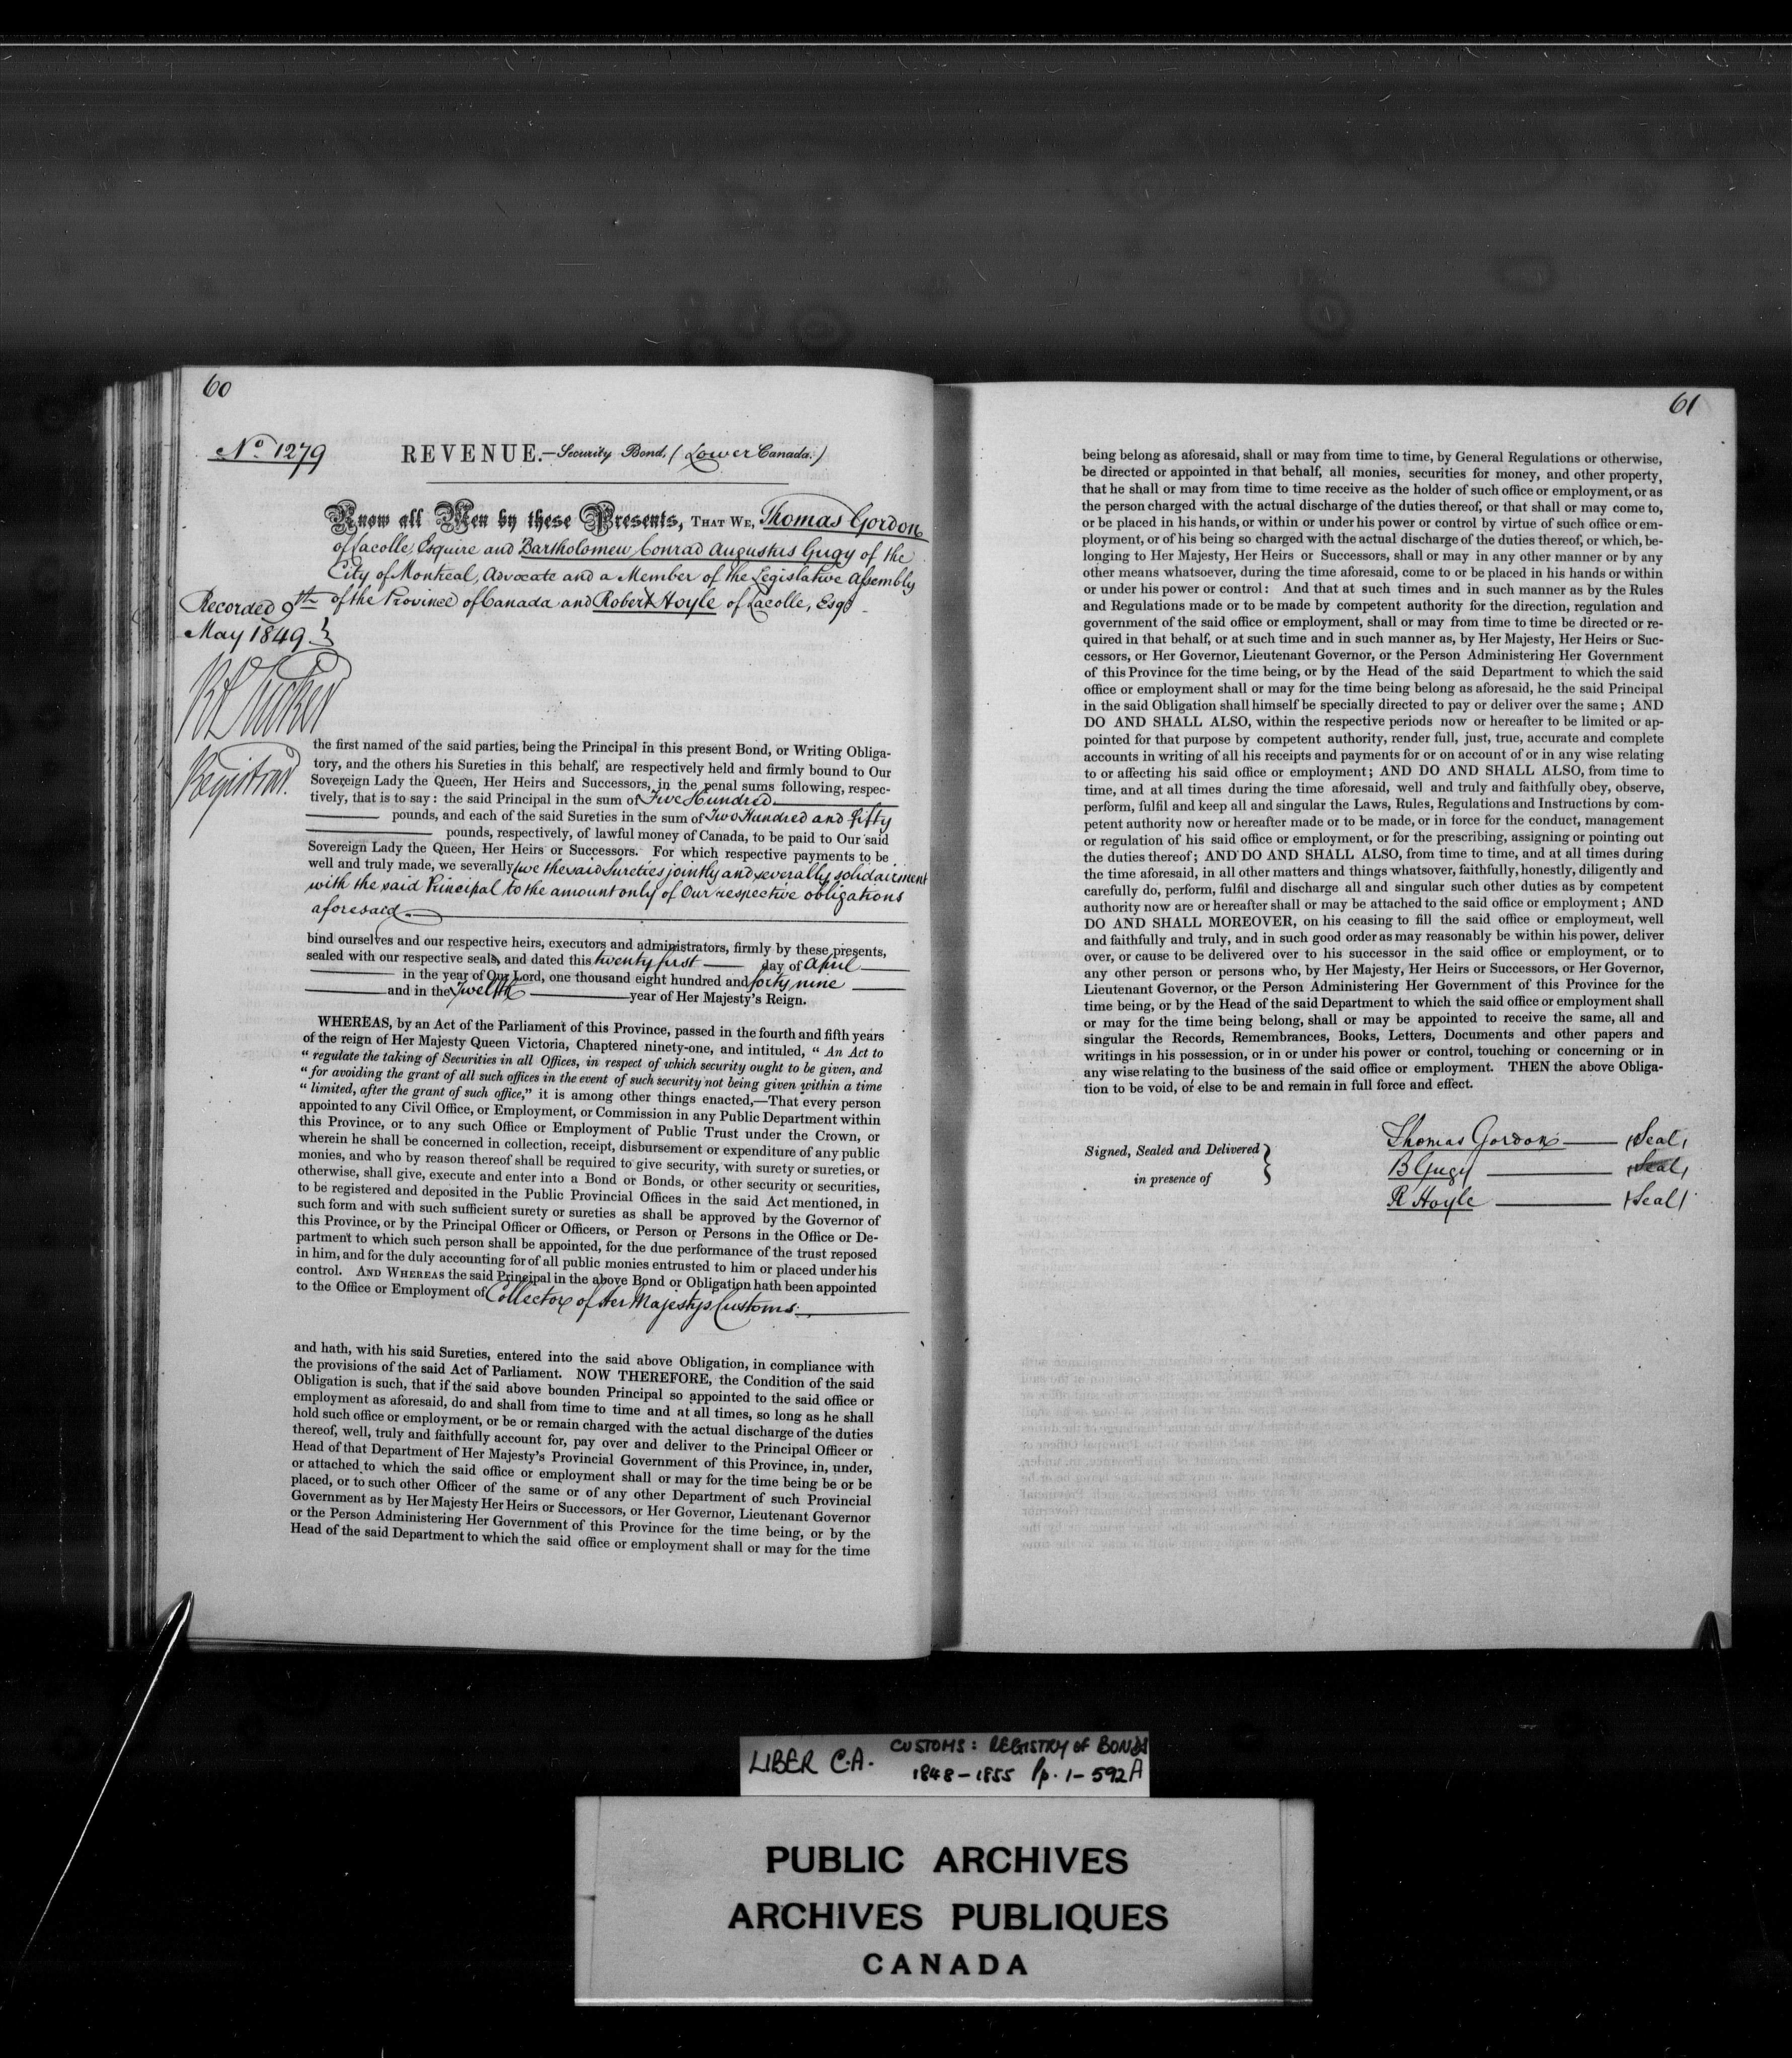 60
No. 1279
REVENUE.—Security Bond, (Lower Canada.)
Know all Men by these Presents, THAT WE, Thomas Gordon
of Lacolle, Esquire and Bartholomew Conrad Augustus Gugy of the
City of Montreal, Advocate and a Member of the Legislative Assembly
of the Province of Canada and Robert Hoyle of Lacolle, Esqr
Recorded 9th
May 1849
Registrar.
the first named of the said parties, being the Principal in this present Bond, or Writing Obliga-
tory, and the others his Sureties in this behalf, are respectively held and firmly bound to Our
Sovereign Lady the Queen, Her Heirs and Successors, in the penal sums following, respec-
tively, that is to say: the said Principal in the sum of Five Hundred
pounds, and each of the said Sureties in the sum of Two Hundred and fifty
pounds, respectively, of lawful money of Canada, to be paid to Our said
Sovereign Lady the Queen, Her Heirs or Successors. For which respective payments to be
well and truly made, we severally, we the said Sureties jointly and severally, solidairment
with the said Principal to the amount only of Our respective obligations
aforesaid.
bind ourselves and our respective heirs, executors and administrators, firmly by these presents,
sealed with our respective seals, and dated this twenty first day of April
in the year of Our Lord, one thousand eight hundred and forty nine
and in the Twelfth year of Her Majesty's Reign.
WHEREAS, by an Act of the Parliament of this Province, passed in the fourth and fifth years
of the reign of Her Majesty Queen Victoria, Chaptered ninety-one, and intituled, “ An Act to
“ regulate the taking of Securities in all Offices, in respect of which security ought to be given, and
“ for avoiding the grant of all such offices in the event of such security not being given within a time
“ limited, after the grant of such office,” it is among other things enacted,—That every person
appointed to any Civil Office, or Employment, or Commission in any Public Department within
this Province, or to any such Office or Employment of Public Trust under the Crown, or
wherein he shall be concerned in collection, receipt, disbursement or expenditure of any public
monies, and who by reason thereof shall be required to give security, with surety or sureties, or
otherwise, shall give, execute and enter into a Bond or Bonds, or other security or securities,
to be registered and deposited in the Public Provincial Offices in the said Act mentioned, in
such form and with such sufficient surety or sureties as shall be approved by the Governor of
this Province, or by the Principal Officer or Officers, or Person or Persons in the Office or De-
partment to which such person shall be appointed, for the due performance of the trust reposed
in him, and for the duly accounting for of all public monies entrusted to him or placed under his
control. AND WHEREAS the said Principal in the above Bond or Obligation hath been appointed
to the Office or Employment of Collector of Her Majesty's Customs.
and hath, with his said Sureties, entered into the said above Obligation, in compliance with
the provisions of the said Act of Parliament. NOW THEREFORE, the Condition of the said
Obligation is such, that if the said above bounden Principal so appointed to the said office or
employment as aforesaid, do and shall from time to time and at all times, so long as he shall
hold such office or employment, or be or remain charged with the actual discharge of the duties
thereof, well, truly and faithfully account for, pay over and deliver to the Principal Officer or
Head of that Department of Her Majesty's Provincial Government of this Province, in, under,
or attached to which the said office or employment shall or may for the time being be or be
placed, or to such other Officer of the same or of any other Department of such Provincial
Government as by Her Majesty Her Heirs or Successors, or Her Governor, Lieutenant Governor
or the Person Administering Her Government of this Province for the time being, or by the
Head of the said Department to which the said office or employment shall or may for the time
61
being belong as aforesaid, shall or may from time to time, by General Regulations or otherwise,
be directed or appointed in that behalf, all monies, securities for money, and other property,
that he shall or may from time to time receive as the holder of such office or employment, or as
the person charged with the actual discharge of the duties thereof, or that shall or may come to,
or be placed in his hands, or within or under his power or control by virtue of such office or em-
ployment, or of his being so charged with the actual discharge of the duties thereof, or which, be-
longing to Her Majesty, Her Heirs or Successors, shall or may in any other manner or by any
other means whatsoever, during the time aforesaid, come to or be placed in his hands or within
or under his power or control: And that at such times and in such manner as by the Rules
and Regulations made or to be made by competent authority for the direction, regulation and
government of the said office or employment, shall or may from time to time be directed or re-
quired in that behalf, or at such time and in such manner as, by Her Majesty, Her Heirs or Suc-
cessors, or Her Governor, Lieutenant Governor, or the Person Administering Her Government
of this Province for the time being, or by the Head of the said Department to which the said
office or employment shall or may for the time being belong as aforesaid, he the said Principal
in the said Obligation shall himself be specially directed to pay or deliver over the same; AND
DO AND SHALL ALSO, within the respective periods now or hereafter to be limited or ap-
pointed for that purpose by competent authority, render full, just, true, accurate and complete
accounts in writing of all his receipts and payments for or on account of or in any wise relating
to or affecting his said office or employment; AND DO AND SHALL ALSO, from time to
time, and at all times during the time aforesaid, well and truly and faithfully obey, observe,
perform, fulfil and keep all and singular the Laws, Rules, Regulations and Instructions by com-
petent authority now or hereafter made or to be made, or in force for the conduct, management
or regulation of his said office or employment, or for the prescribing, assigning or pointing out
the duties thereof; AND DO AND SHALL ALSO, from time to time, and at all times during
the time aforesaid, in all other matters and things whatsover, faithfully, honestly, diligently and
carefully do, perform, fulfil and discharge all and singular such other duties as by competent
authority now are or hereafter shall or may be attached to the said office or employment; AND
DO AND SHALL MOREOVER, on his ceasing to fill the said office or employment, well
and faithfully and truly, and in such good order as may reasonably be within his power, deliver
over, or cause to be delivered over to his successor in the said office or employment, or to
any other person or persons who, by Her Majesty, Her Heirs or Successors, or Her Governor,
Lieutenant Governor, or the Person Administering Her Government of this Province for the
time being, or by the Head of the said Department to which the said office or employment shall
or may for the time being belong, shall or may be appointed to receive the same, all and
singular the Records, Remembrances, Books, Letters, Documents and other papers and
writings in his possession, or in or under his power or control, touching or concerning or in
any wise relating to the business of the said office or employment. THEN the above Obliga-
tion to be void, or else to be and remain in full force and effect.
Signed, Sealed and Delivered
in presence of
Thomas Gordon (Seal)
B Gugy (Seal)
R Hoyle (Seal)
LIBER C.A. CUSTOMS: REGISTRY OF BONDS
1848-1855 Pp. 1-592A
PUBLIC ARCHIVES
ARCHIVES PUBLIQUES
CANADA